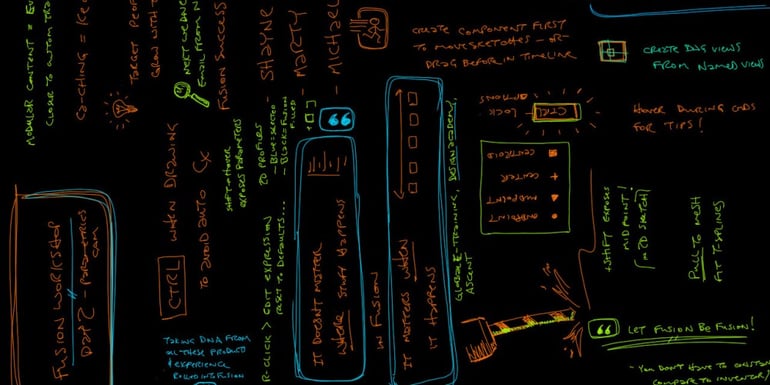 MODULAR CONTENT = 
CLOSER TO CUSTOM
COACHING =
TARGET PEOPLE
GROW WITH
NEXT WEDNES
EMAIL FROM
FUSION SUCCESS
- SHAYNE
- MARTY
- MICHAEL
CREATE COMPONENT FIRST
TO MOVE SKETCHES - OR -
DRAG BEFORE IN TIMELINE
CREATE DWG VIEWS
FROM NAMED VIEWS
HOVER DURING CMDS
FOR TIPS!
CTRL
LOCK
OPTIONS
CENTROID
CENTER
MIDPOINT
ENDPOINT
CTRL
WHEN DRAWING
TO AVOID AUTO CX
SHIFT + HOVER
EXPOSES PARAMETERS
2D PROFILES
- BLUE = 
- BLACK = FUSION
FILLED
R-CLICK > EDIT EXPRESSION
RESET TO DEFAULTS...
FUSION WORKSHOP
DAY 2 - PARAMETRICS
CAM
TAKING DNA FROM
ALL THESE PRODUCTS
& EXPERIENCE
ROLLED INTO FUSION
IT DOESN'T MATTER
WHERE STUFF HAPPENS
IN FUSION
IT MATTERS WHEN
IT HAPPENS
TRAINING, DESIGN ACADEMY,
ASCENT
+SHIFT EXPOSES
MIDPOINT!
IN 2D SKETCH
PULL TO MESH
FAT T-SPLINES
LET FUSION BE FUSION!
- YOU DON'T HAVE TO CONSTANTLY
COMPARE TO INVENTOR)